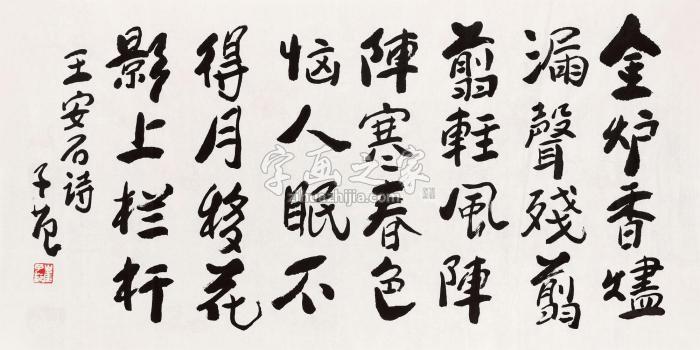 金炉香燼
漏聲殘翦
翦輕風陣
陣寒春色
恼人眠不
得月移花
影上栏杆
王安石詩
子范
字画之家
zihuazhijia.com